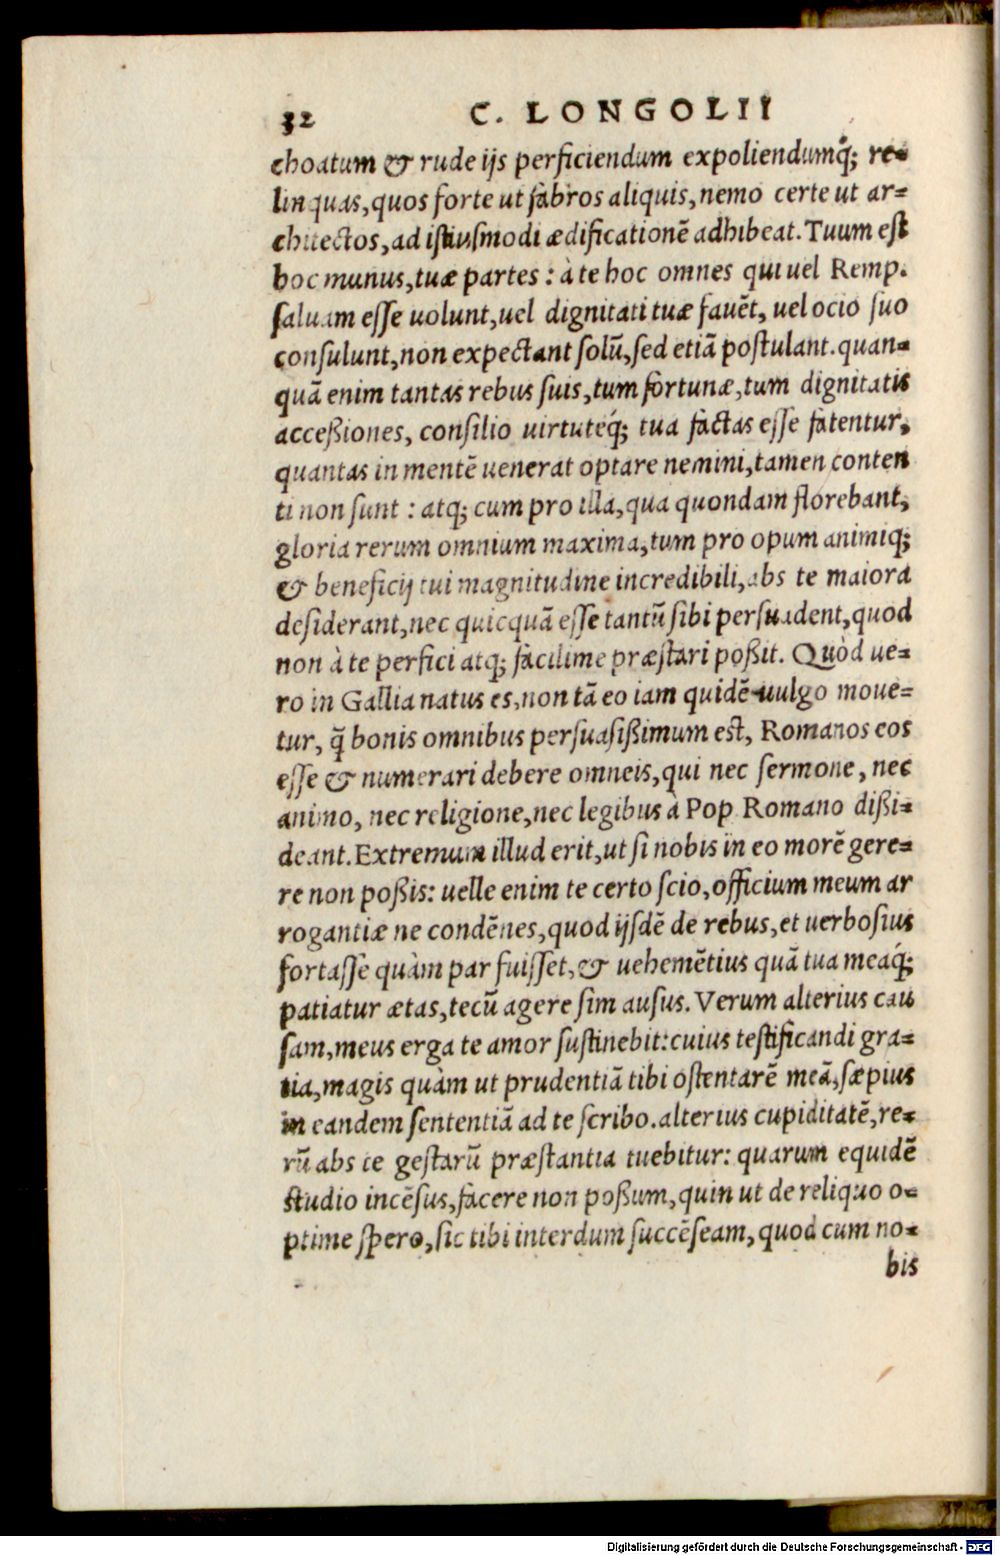 32 C. LONGOLII
choatum & rude ijs perficiendum expoliendumq́;; re-
linquas, quos forte ut fabros aliquis, nemo certe ut ar-
chitectos, ad istiusmodi ædificationē adhibeat. Tuum est
hoc munus, tuæ partes: à te hoc omnes qui uel Remp.
saluam esse uolunt, uel dignitati tuæ fauēt, uel ocio suo
consulunt, non expectant solū, sed etiā postulant. quan-
quā enim tantas rebus suis, tum fortunæ, tum dignitatis
acceßiones, consilio uirtuteq́; tua factas esse fatentur,
quantas in mentē uenerat optare nemini, tamen conten
ti non sunt: atq; cum pro illa, qua quondam florebant,
gloria rerum omnium maxima, tum pro opum animiq;
& beneficij tui magnitudine incredibili, abs te maiora
desiderant, nec quicquā esse tantū sibi persuadent, quod
non à te perfici atq; facilime præstari poßit. Quòd ue-
ro in Gallia natus es, non tā eo iam quidē uulgo moue-
tur, q̄ bonis omnibus persuasißimum est, Romanos eos
esse & numerari debere omneis, qui nec sermone, nec
animo, nec religione, nec legibus à Pop Romano dißi-
deant. Extremum illud erit, ut si nobis in eo morē gere-
re non poßis: uelle enim te certo scio, officium meum ar
rogantiæ ne condēnes, quod ijsdē de rebus, et uerbosius
fortasse quàm par fuisset, & uehemētius quā tua meaq́;
patiatur ætas, tecū agere sim ausus. Verum alterius cau
sam, meus erga te amor sustinebit: cuius testificandi gra-
tia, magis quàm ut prudentiā tibi ostentarē meā, sæpius
in eandem sententiā ad te scribo. alterius cupiditatē, re-
rū abs te gestarū præstantia tuebitur: quarum equidē
studio incēsus, facere non poßum, quin ut de reliquo o-
ptime spero, sic tibi interdum succēseam, quod cum no-
bis
Digitalisierung gefördert durch die Deutsche Forschungsgemeinschaft - DFG